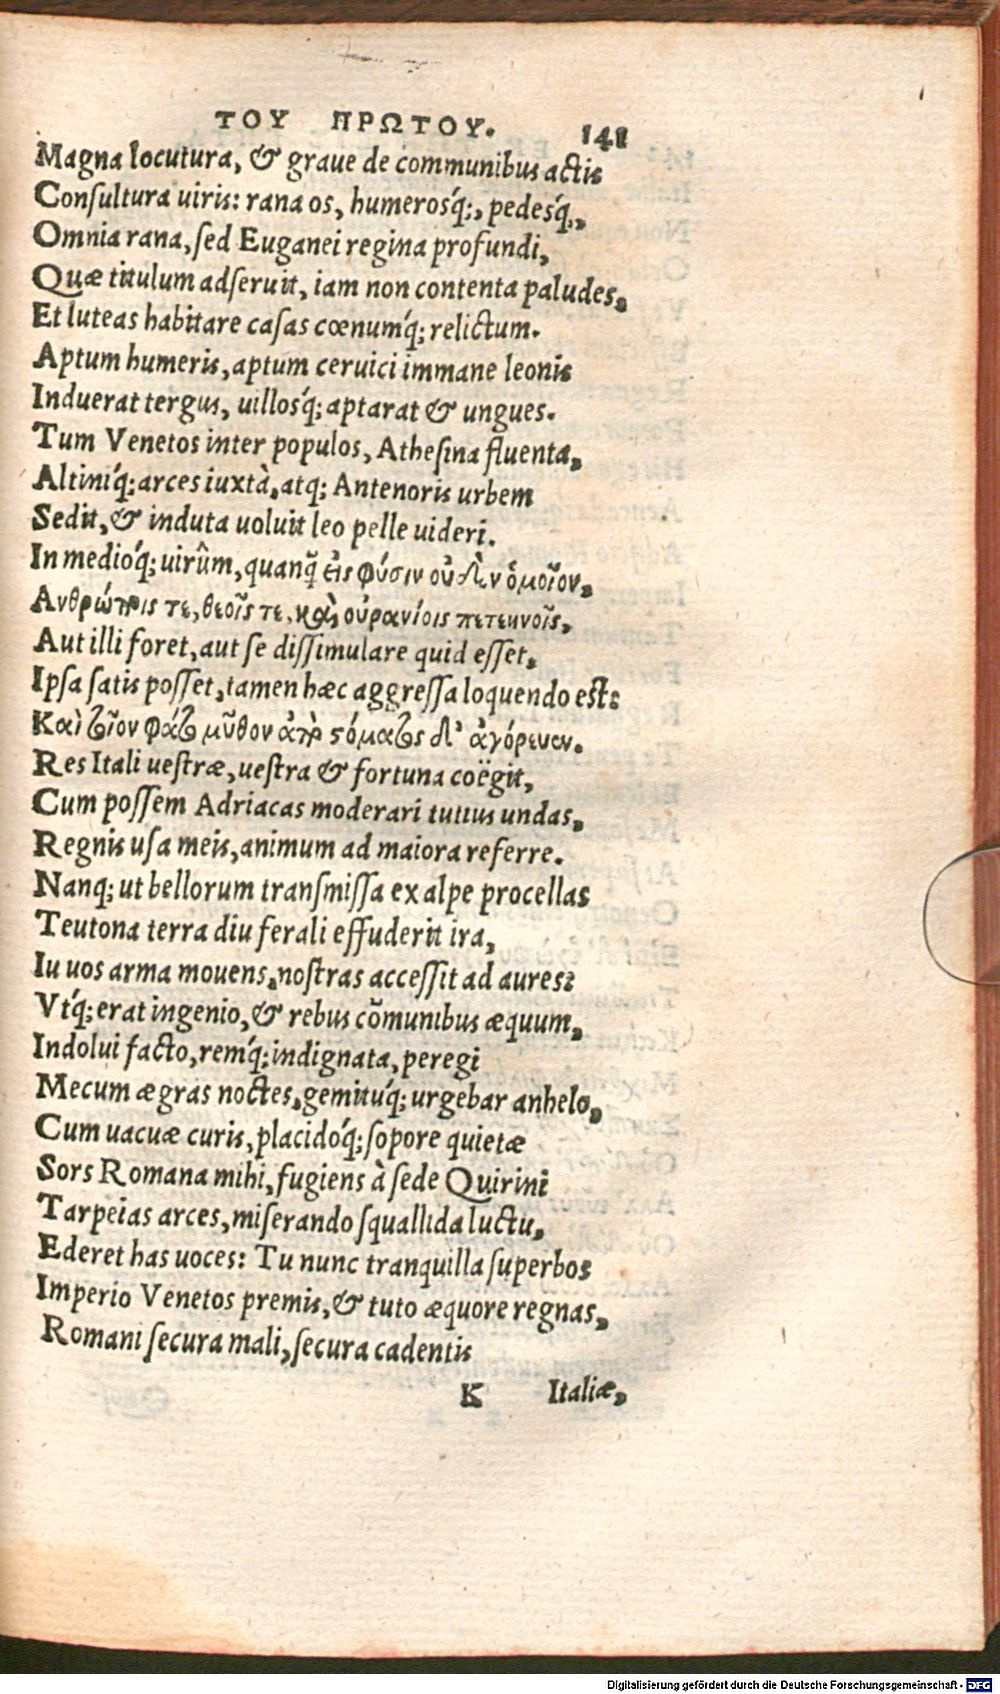 ΤΟΥ ΠΡΩΤΟΥ. 141
Magna locutura, & graue de communibus actis
Consultura uiris: rana os, humerosq́;, pedesq́,,
Omnia rana, sed Euganei regina profundi,
Quæ titulum adseruit, iam non contenta paludes,
Et luteas habitare casas cœnumq́; relictum.
Aptum humeris, aptum ceruici immane leonis
Induerat tergus, uillosq́; aptarat & ungues.
Tum Venetos inter populos, Athesina fluenta,
Altiniq́; arces iuxtà, atq; Antenoris urbem
Sedit, & induta uoluit leo pelle uideri.
In medioq́; uirûm, quanq̃ εἰς φύσιν οὐδὲν ὁμοῖον,
Ανθρώποις τε, θεοῖς τε, καὶ οὐρανίοις πετεηνοῖς,
Aut illi foret, aut se dissimulare quid esset,
Ipsa satis posset, tamen hæc aggressa loquendo est:
Καὶ τοῖον φάτο μῦθον ἀπὸ στόματος δ' ἀγόρευεν.
Res Itali uestræ, uestra & fortuna coëgit,
Cum possem Adriacas moderari tutius undas,
Regnis usa meis, animum ad maiora referre.
Nanq; ut bellorum transmissa ex alpe procellas
Teutona terra diu ferali effuderit ira,
Iu uos arma mouens, nostras accessit ad aures:
Vtq́; erat ingenio, & rebus cõmunibus æquum,
Indolui facto, remq́; indignata, peregi
Mecum ægras noctes, gemituq́; urgebar anhelo,
Cum uacuæ curis, placidoq́; sopore quietæ
Sors Romana mihi, fugiens à sede Quirini
Tarpeias arces, miserando squallida luctu,
Ederet has uoces: Tu nunc tranquilla superbos
Imperio Venetos premis, & tuto æquore regnas,
Romani secura mali, secura cadentis
K Italiæ,
Digitalisierung gefördert durch die Deutsche Forschungsgemeinschaft - DFG